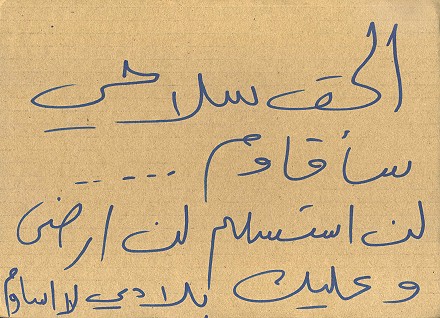 الحق سلاحي
سأقاوم ......
لن استسلم لن ارضى
و عليك بلادي لا اساوم